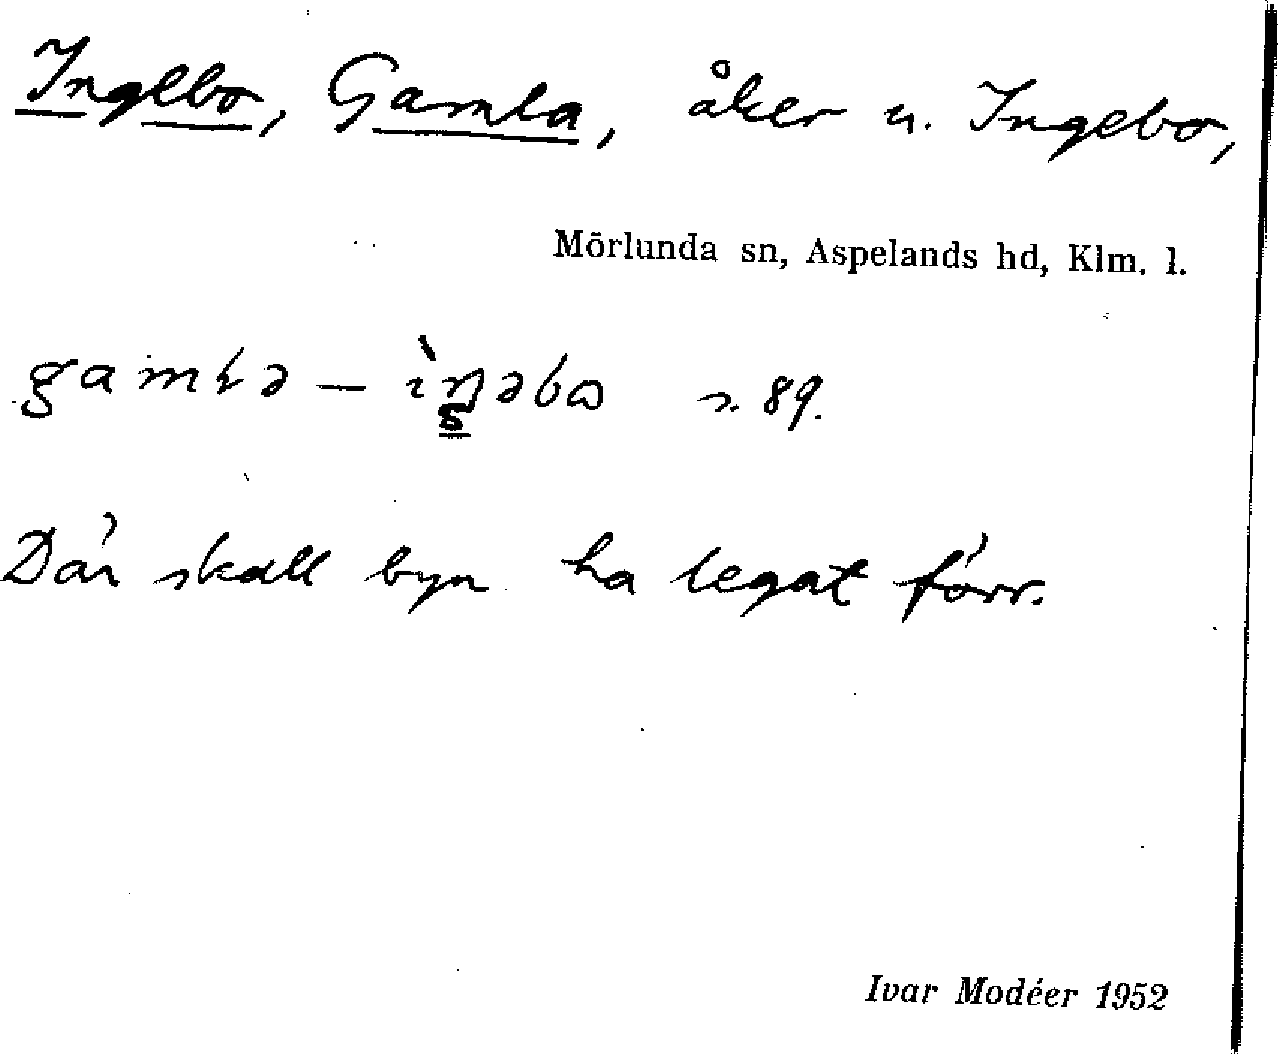 Ingebo, Gamla, åker u. Ingebo,
Mörlunda sn, Aspelands hd, Klm. l.
Där skall byn ha legat förr.
Ivar Modéer 1952